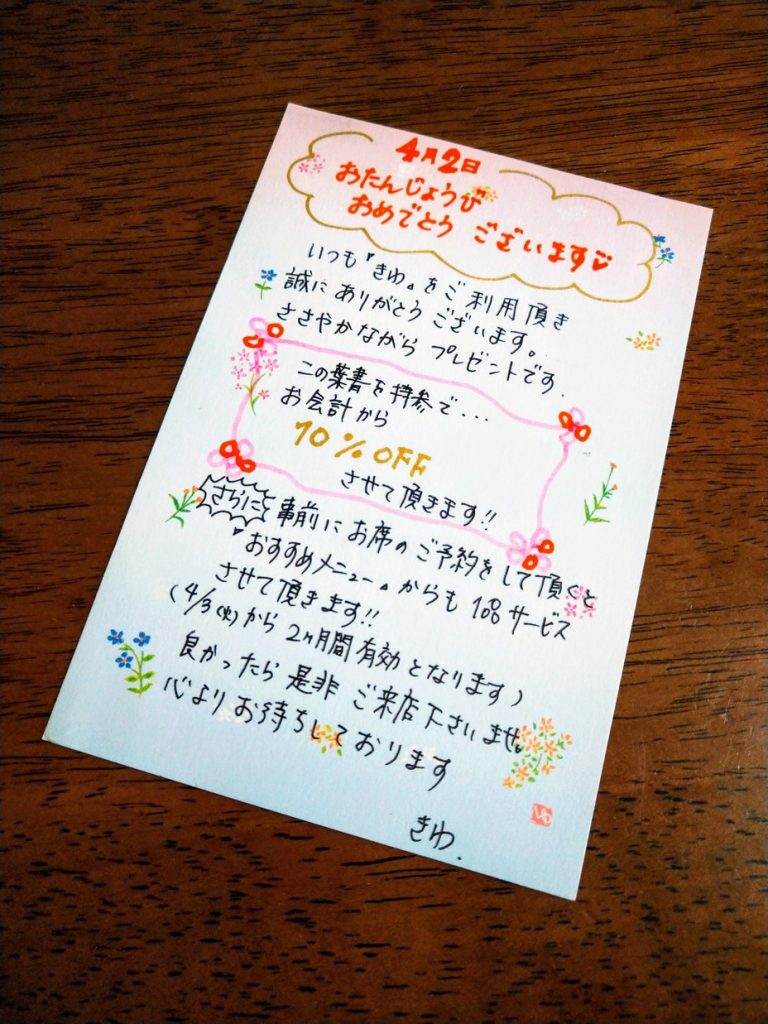 4月2日
おたんじょうび
おめでとう ございます♡
いつも『きわ』をご利用頂き
誠にありがとうございます。
ささやかながら プレゼントです.
この葉書を持参で...
お会計から
10% OFF
させて頂きます!!
さらに 事前にお席のご予約をして頂くと
『おすすめメニュー』からも 1品サービス
させて頂きます!!
(4/3(火)から 2ヶ月間有効となります)
良かったら是非 ご来店下さいませ。
心よりお待ちしております
きわ.